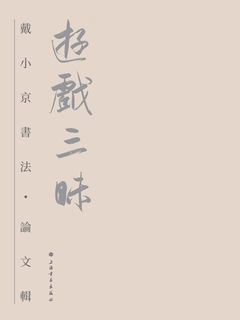 遊戲三昧
戴小京書法·論文輯
上海書畫出版社